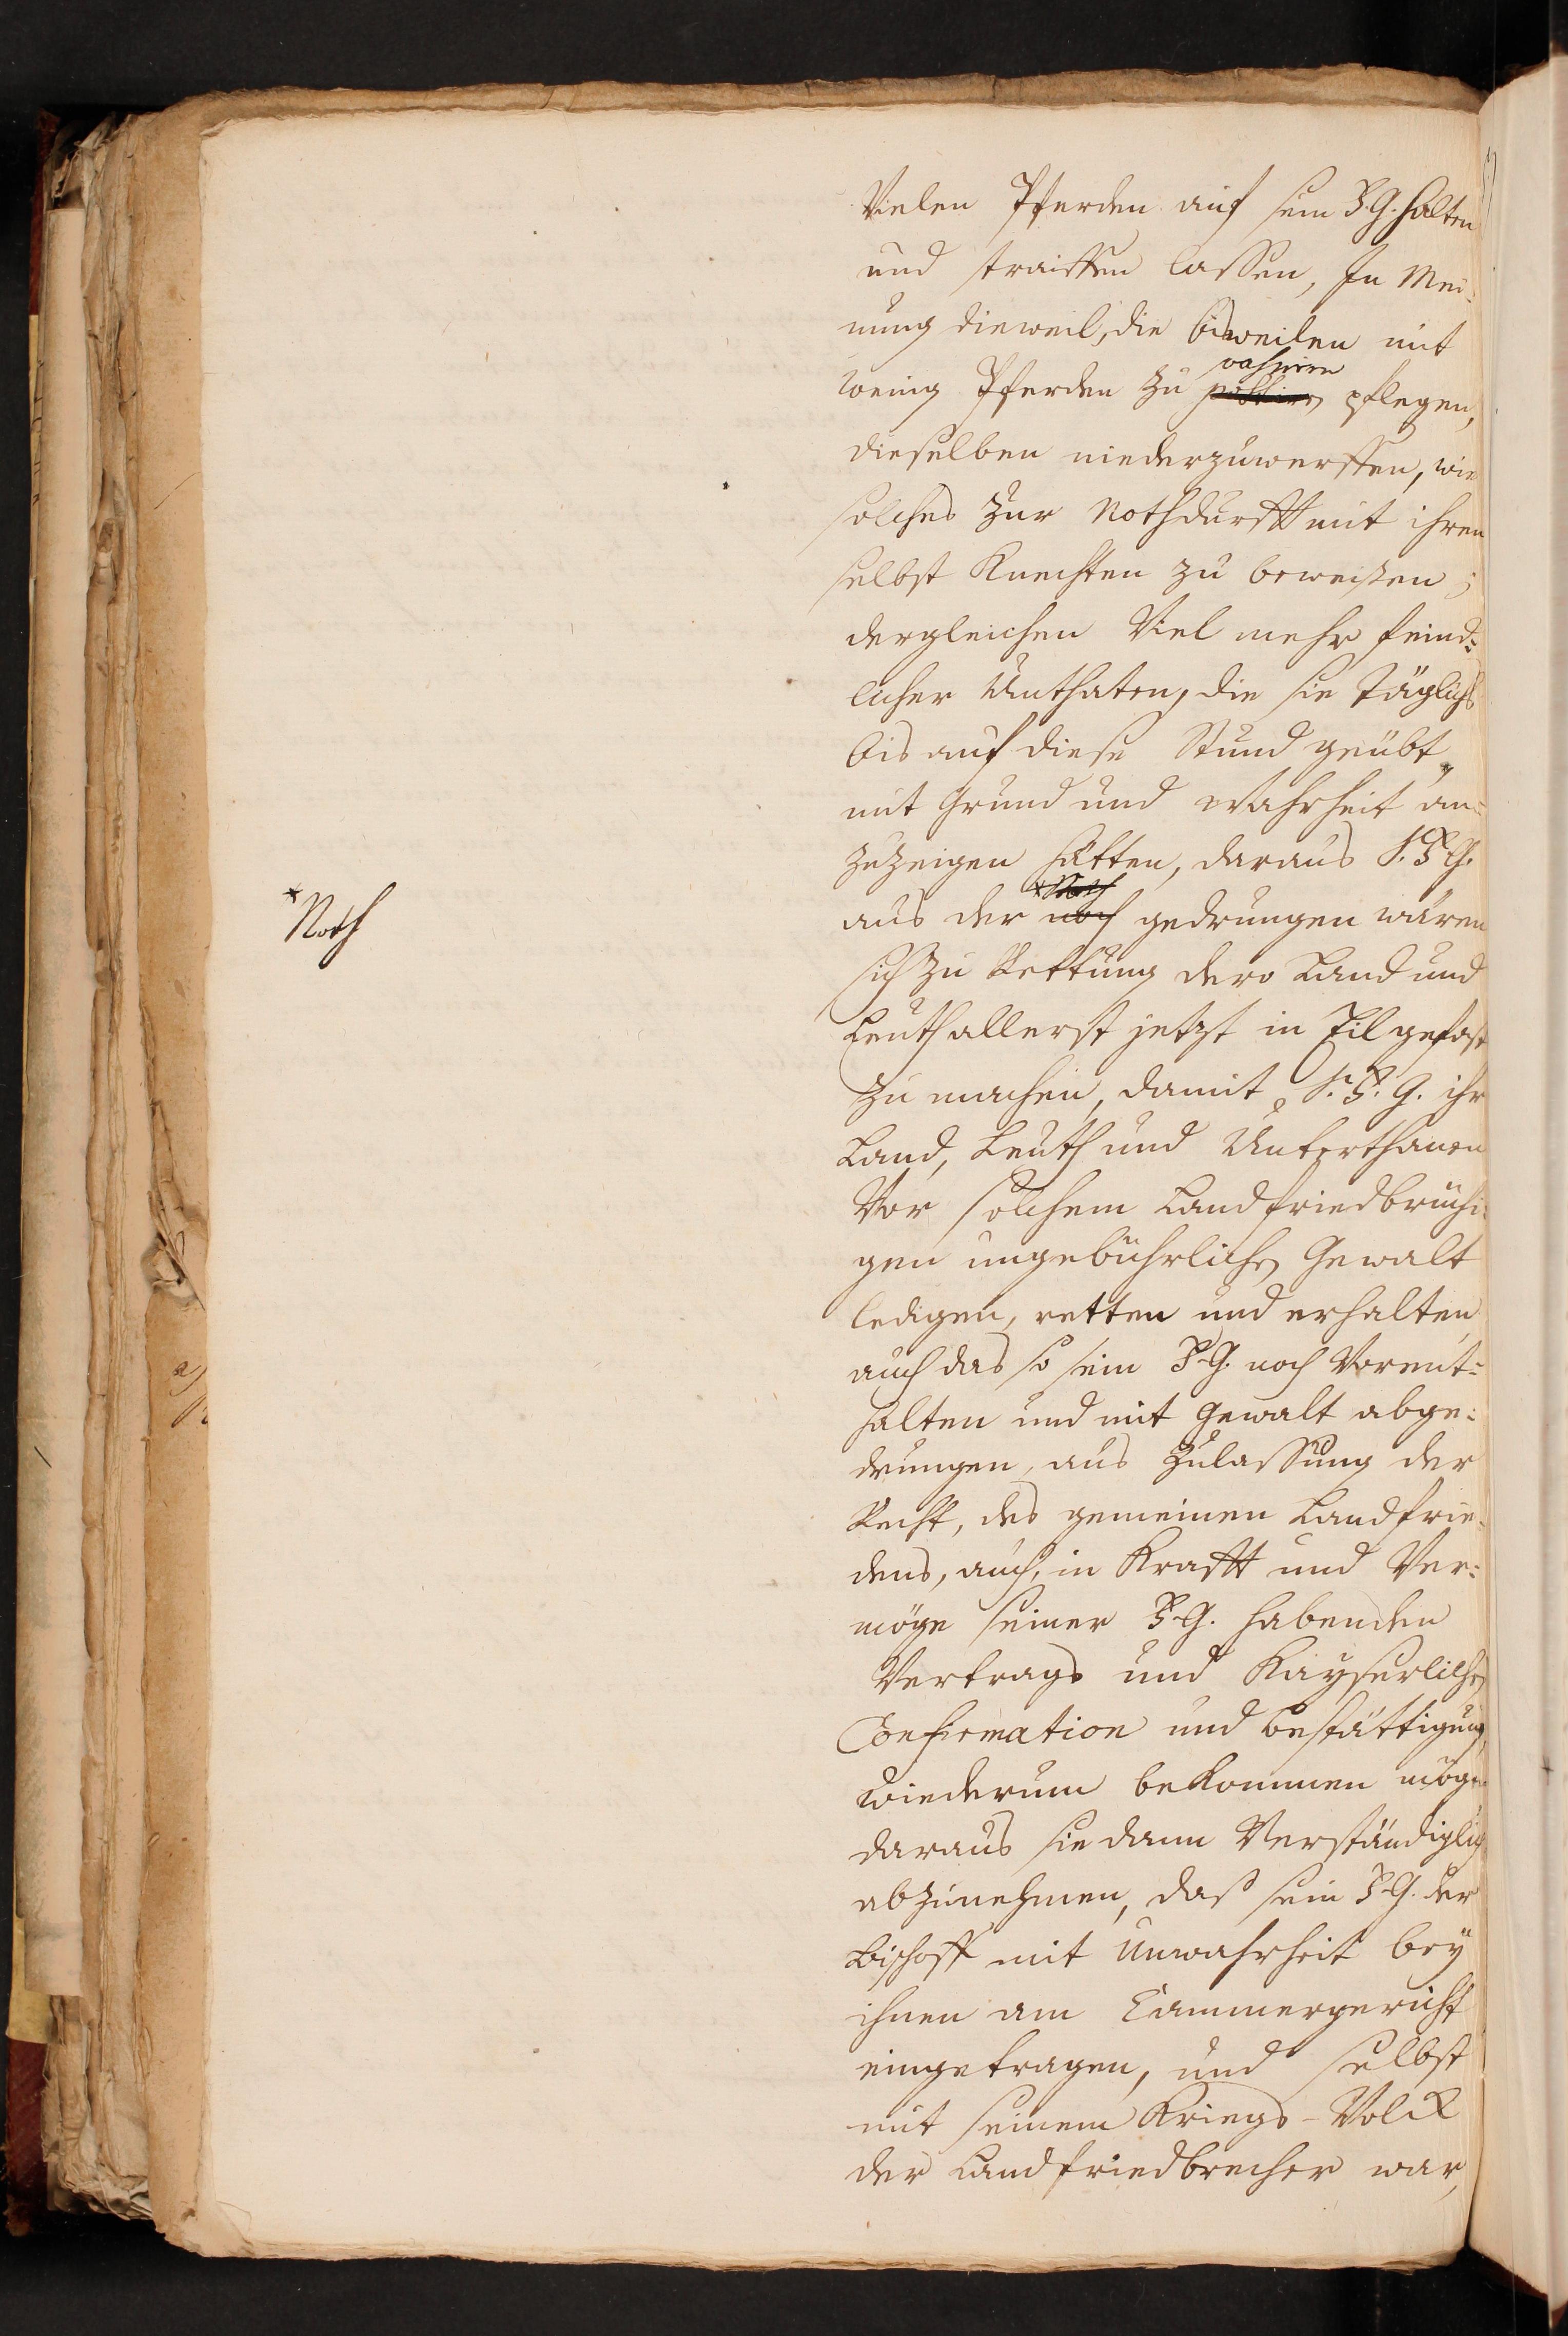 Vielen Pferden auf sein F. G. halten
und straiffen lassen, In Mei-
nung dieweil, die bisweilen mit
wenig Pferden zu pflegen,
dieselben niederzuwerffen, wie
solches zur Nothdurfft mit ihren
selbst Knechten zu beweißen;
dergleichen Viel mehr feind-
licher Unthaten, die sie täglichs
bis auf diese Stund geübt,
mit Grund und Wahrheit an-
zuzeigen hätten, daraus S. F. G.
*Noth
aus der noch gedrungen wären
sich zu Rettung dero Land und
Leuth allerst jetzt in Eil gefast
zu machen, damit S. F. G. ihr
Land, Leuth und Unterthanen
Vor solchem Landfriedbrüchi-
gen ungebührlichen Gewalt
ledigen, retten und erhalten
auch das so sein F. G. noch Vorent-
halten und mit Gewalt abge-
drungen, aus Zulassung der
Recht, des gemeinen Landfrie-
dens, auch, in Krafft und Ver-
möge seiner F. G. habenden
Vertrags und Kayserlichen
Confirmation und Bestättigung,
wiederum bekommen mögen
daraus sie dann Verständiglich
abzunehmen, daß sein F. G. der
Bischoff mit Unwahrheit bey
ihnen am Cammergericht
eingetragen, und selbst
mit seinem Kriegs-Volck
der Landfriedbrecher war,
*Noth